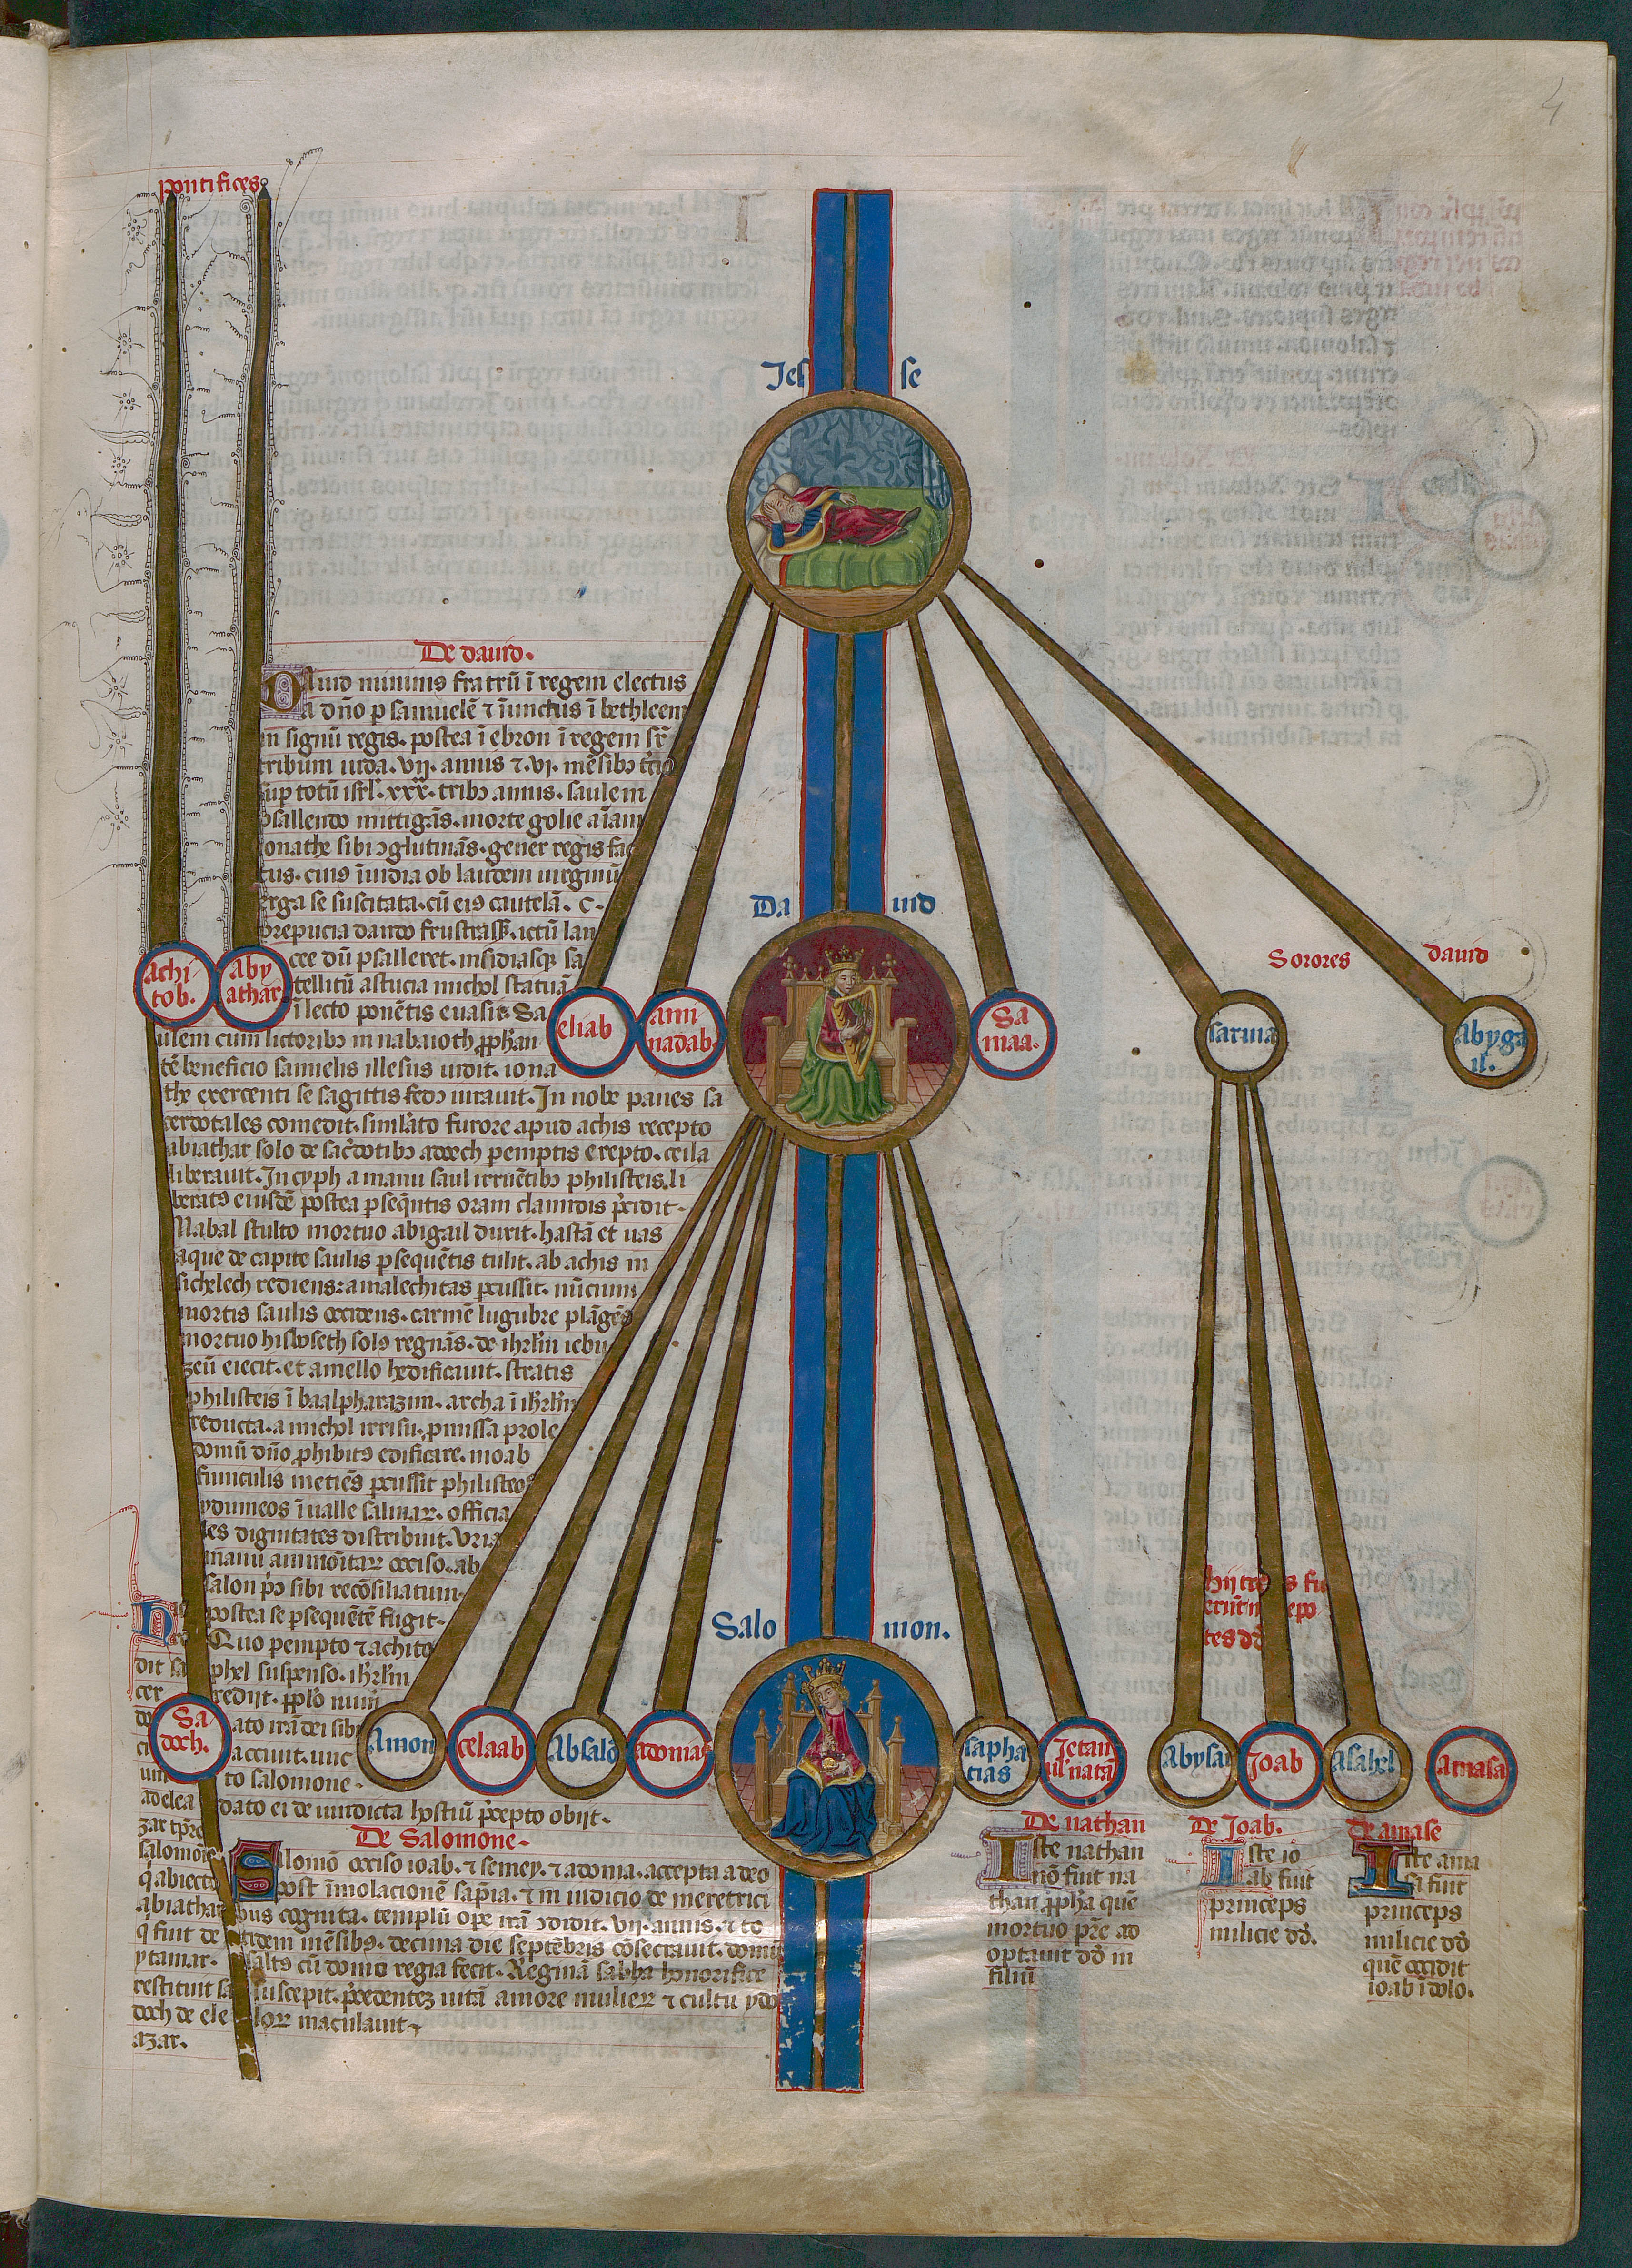 4
pontifices
Jes se
De dauid.
Dauid minimꝰ fratrū ī regem electus
a dño ꝑ samuelē ⁊ īunctus ī bethleem
in signū regis. postea ī ebron ī regem sr̄
tribum iuda. vij. annis ⁊ .vi. mēsibꝫ
sup totū isrl. xxx. tribꝫ annis. saulem
psallendo mittigās. morte golie aīam
ionathe sibi ꝯglutinās. gener regis fac
tus. cuiꝰ īuidia ob laudem uirginū
erga se suscitata. cū eiꝰ cautelā. c.
prepucia dando frustrass. ictū lan
cee dū psalleret. insidiasqꝫ sa
tellitū astucia michol statuā
ī lecto ponētis euasit. Sa
ulem cum lictoribꝫ in nabaioth ꝓphan
tē beneficio samuelis illesus uidit. iona
the exercenti se sagittis fedꝰ iurauit. In nobe panes sa
cerdotales comedit. simłato furore apud achis recepto
abiathar solo de sac̄dotibꝫ a doech peremptis erepto. ceila
liberauit. In cyph a manu saul irruētibꝫ philisteis. li
beratꝰ eiusdē postea ꝑseqūtis oram clamidis p̄cidit.
Nabal stulto mortuo abigail duxit. hastā et uas
aque de capite saulis ꝑsequētis tulit. ab achis in
sichelech rediens: amalechitas ꝑcussit. nūcium
mortis saulis occidens. carmē lugubre plāgēs
mortuo hisboseth solꝰ regnās. de ihrlm iebu
zeū eiecit. et a mello hedificauit. stratis
philisteis ī baalpharazim. archa ī ihrlm
reducta. a michol irrisu. pmissa prole
domū dño ꝓhibitꝰ edificare. moab
funiculis metiēs ꝑcussit philisteos
ydumeos ī ualle salinaꝝ. officia
les dignitates distribuit. Vria
manu ammōitaꝝ occiso. ab
salon pꝰ sibi recōsiliatum.
postea se ꝑsequētē fugit.
Quo ꝑempto ⁊ achito
phel suspenso. ihrlm
redijt. pplo num̄
ato irā dei sibi
acciuit. unc
to salomone.
dato ei de uindicta hostiū p̄cepto obijt.
Da uid
Sorores dauid
achi
tob.
aby
athar
eliab
ami
nadab.
Sa
maa.
saruia
Abyga
il.
hij tres fu
erūt nepo
tes dd̄
Salo mon.
dit sa
cer
do
ci
um
ad elea
zar tp̄re
salomōis
q̄ abiecto
abiathar
q̄ fuit de
ytamar.
restituit sa
doch de ele
azar.
Sa
doch.
Amon
celaab
Absalō
adonias
sapha
tias
Jetan
ul natā
Abysai
Joab
Asahel
Amasa
De Salomone.
Salomō occiso ioab. ⁊ semey. ⁊ adonia. accepta a deo
post īmolacionē sap̄ia. ⁊ in iudicio de meretrici
bus cognita. templū ope irā ꝯdidit. vij. annis. ⁊ to
tidem mēsibꝰ. decima die septēbris cōsecrauit. domū
saltꝰ cū domo regia fecit. Reginā sabba honorifice
suscepit. p̄cedentez uitā amore mulieꝝ ⁊ cultu ydo
loꝝ maculauit.
De nathan
Iste nathan
nō fuit na
than ꝓpha quē
mortuo p̄re ad
optauit dd̄ in
filiū
De Joab.
Iste io
ab fuit
princeps
milicie dd̄.
De amase
Iste ama
sa fuit
princeps
milicie dd̄
quē occidit
ioab ī dolo.